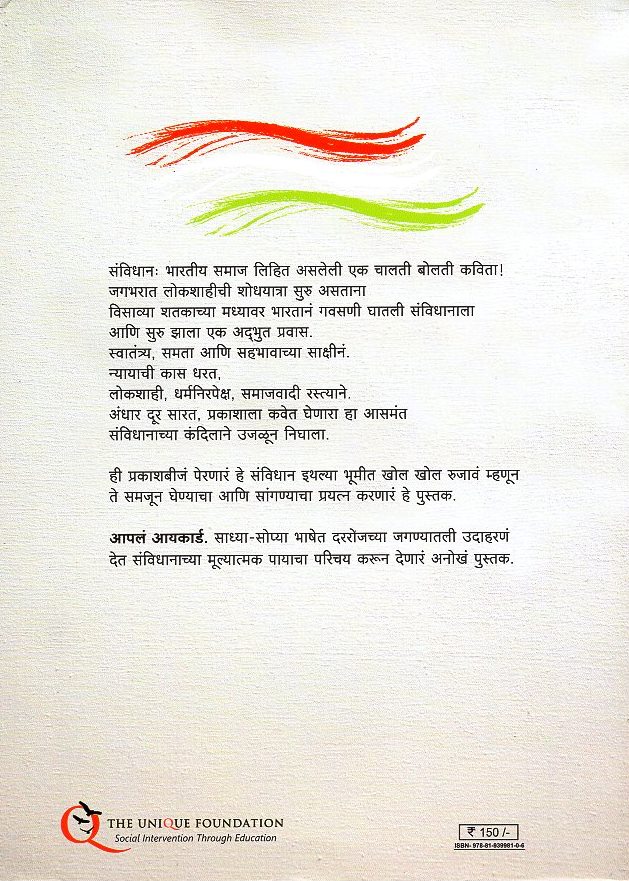 संविधानः भारतीय समाज लिहित असलेली एक चालती बोलती कविता!
जगभरात लोकशाहीची शोधयात्रा सुरु असताना
विसाव्या शतकाच्या मध्यावर भारतानं गवसणी घातली संविधानाला
आणि सुरु झाला एक अद्‌भुत प्रवास.
स्वातंत्र्य, समता आणि सहभावाच्या साक्षीनं.
न्यायाची कास धरत,
लोकशाही, धर्मनिरपेक्ष, समाजवादी रस्त्याने.
अंधार दूर सारत, प्रकाशाला कवेत घेणारा हा आसमंत
संविधानाच्या कंदिलाने उजळून निघाला.
ही प्रकाशबीजं पेरणारं हे संविधान इथल्या भूमीत खोल खोल रुजावं म्हणून
ते समजून घेण्याचा आणि सांगण्याचा प्रयत्न करणारं हे पुस्तक.
आपलं आयकार्ड. साध्या-सोप्या भाषेत दररोजच्या जगण्यातली उदाहरणं
देत संविधानाच्या मूल्यात्मक पायाचा परिचय करून देणारं अनोखं पुस्तक.
THE UNIQUE FOUNDATION
Social Intervention Through Education
₹ 150 /-
ISBN- 978-81-939981-0-6